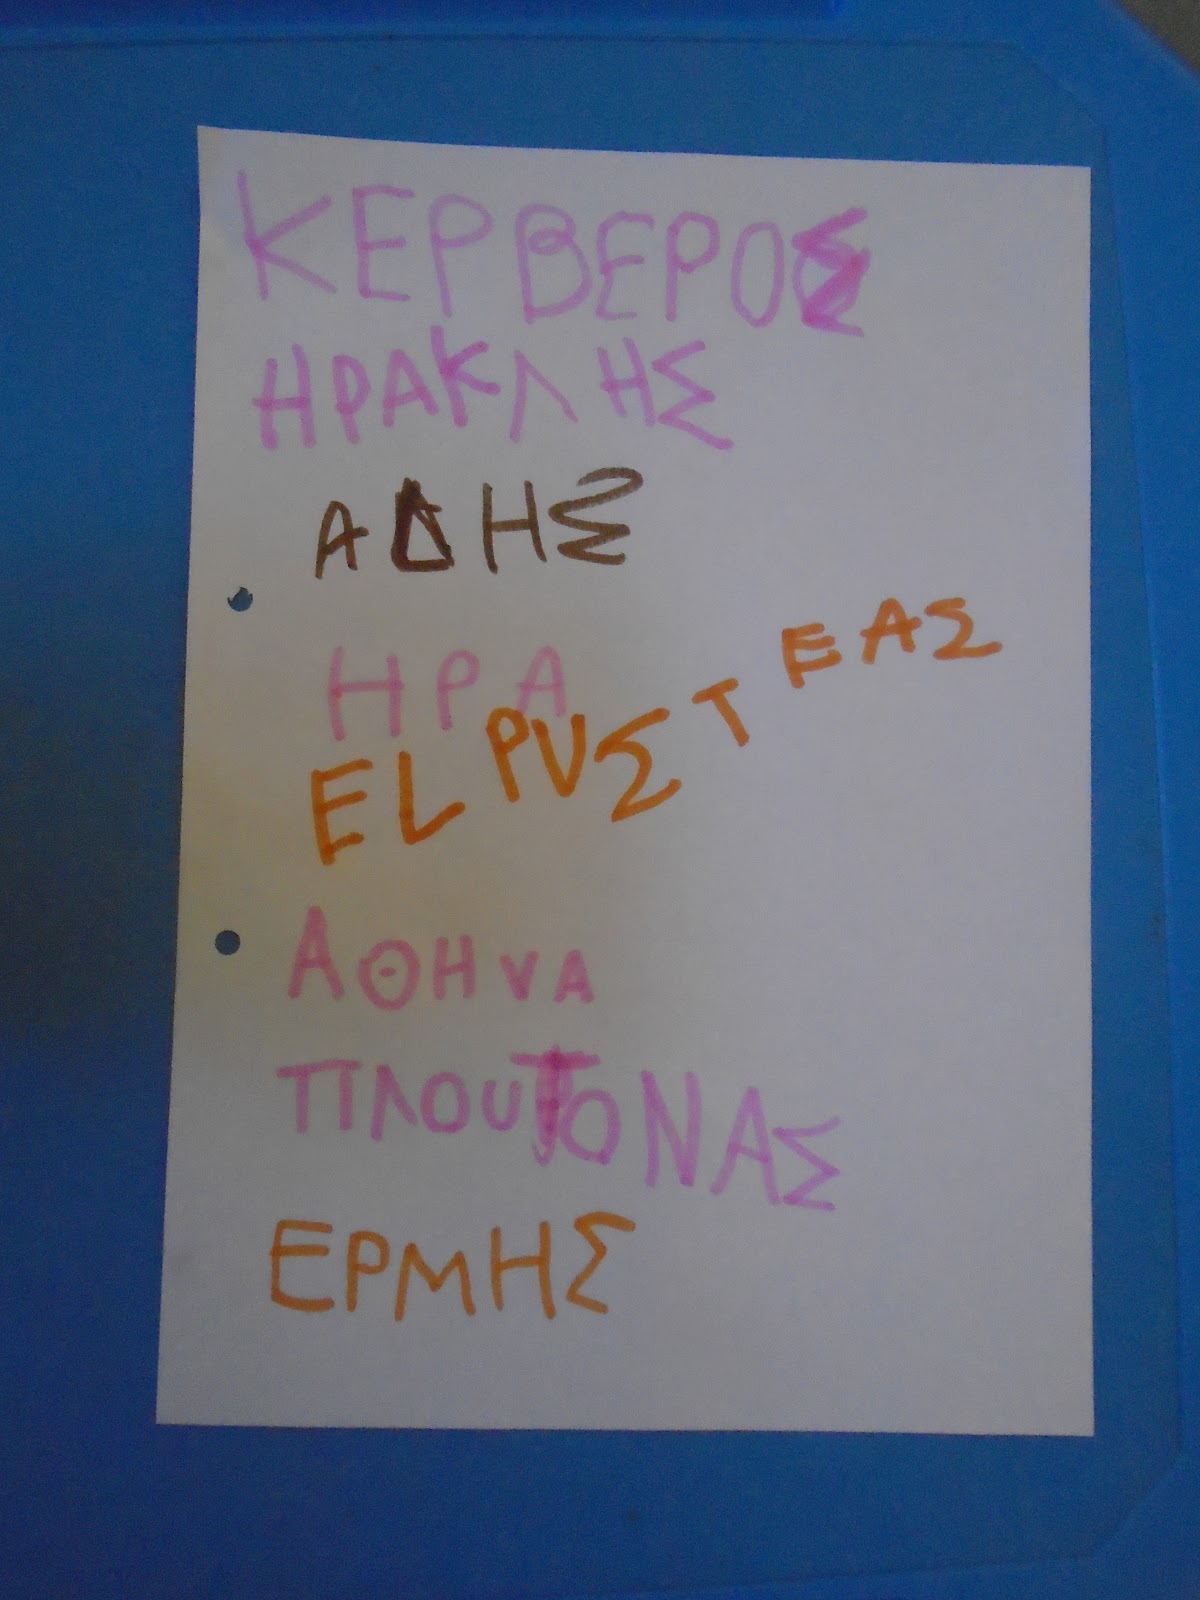 ΚΕΡΒΕΡΟΣ
ΗΡΑΚΛΗΣ
ΑΔΗΣ
ΗΡΑ
ΕLΡΥΣΤΕΑΣ
ΑΘΗΝΑ
ΠΛΟΥΤΟΝΑΣ
ΕΡΜΗΣ